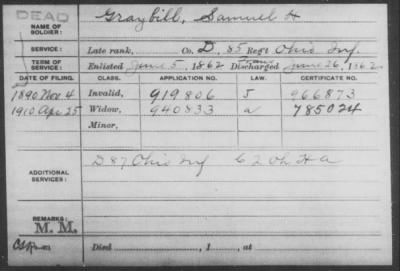 DEAD
NAME OF SOLDIER: Graybill, Samuel H
SERVICE: Late rank, Co. D, 85 Reg't Ohio Inf.
TERM OF SERVICE: Enlisted June 5, 1862 Discharged June 26, 1862
DATE OF FILING. CLASS. APPLICATION NO. LAW. CERTIFICATE NO.
1890 Nov 4 Invalid, 919806 J 966873
1910 Apr 25 Widow, 940833 a 785024
Minor,
ADDITIONAL SERVICES: D 87 Ohio Inf C 2 Oh H A
REMARKS:
M. M.
Died , 1 , at